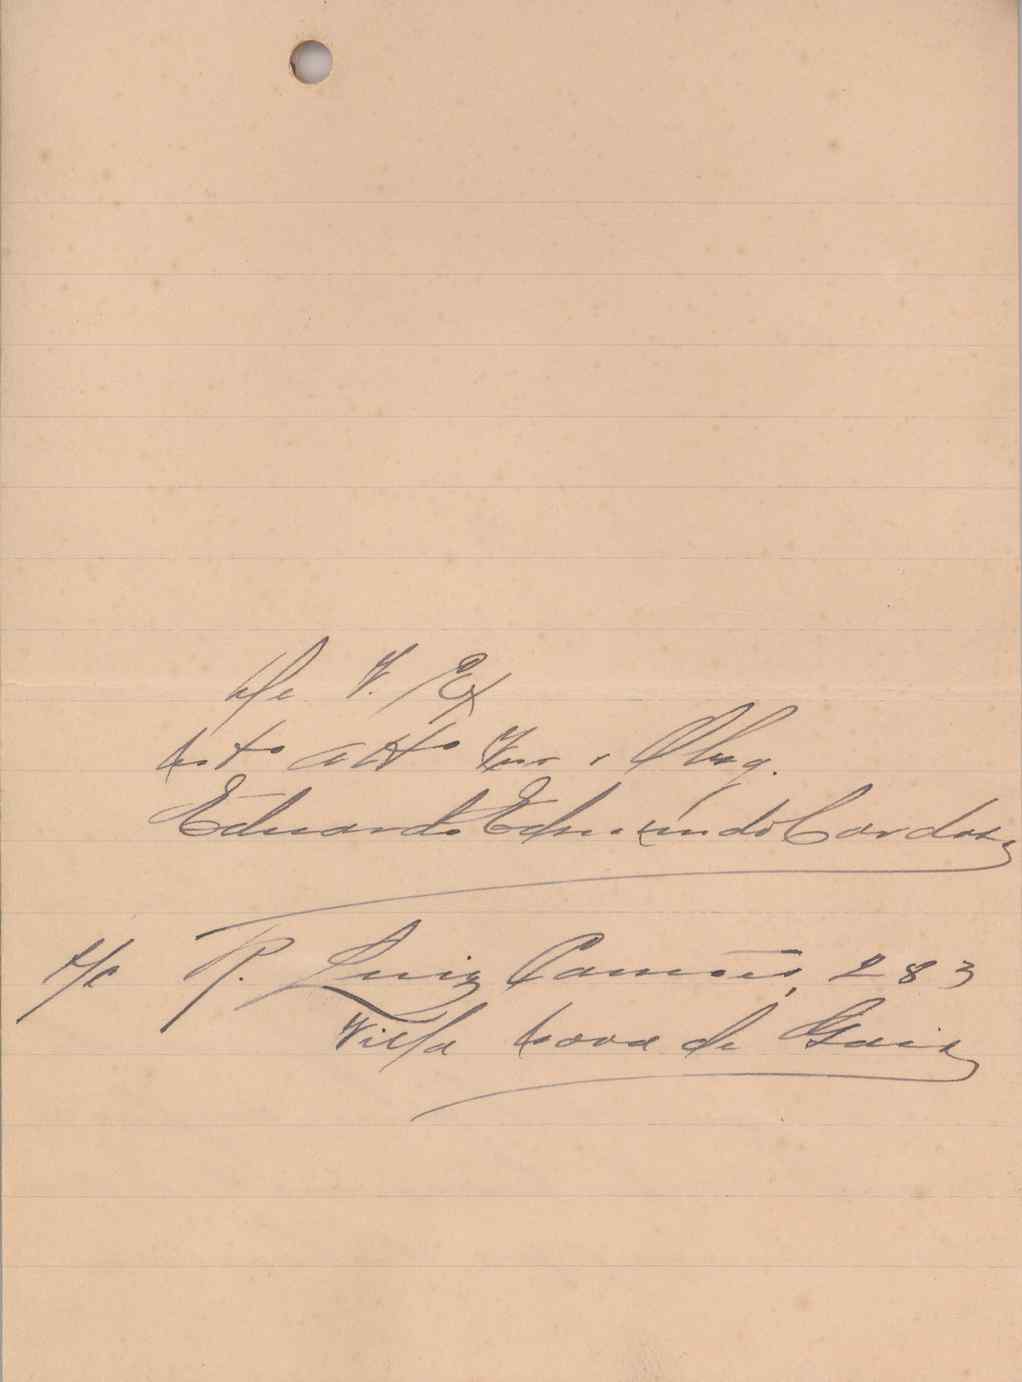 De V. Ex
mto atto Vnr e Obrg.
Eduardo Edmundo Cardoso
S/c R. Luiz Camões, 283
Villa Nova de Gaia